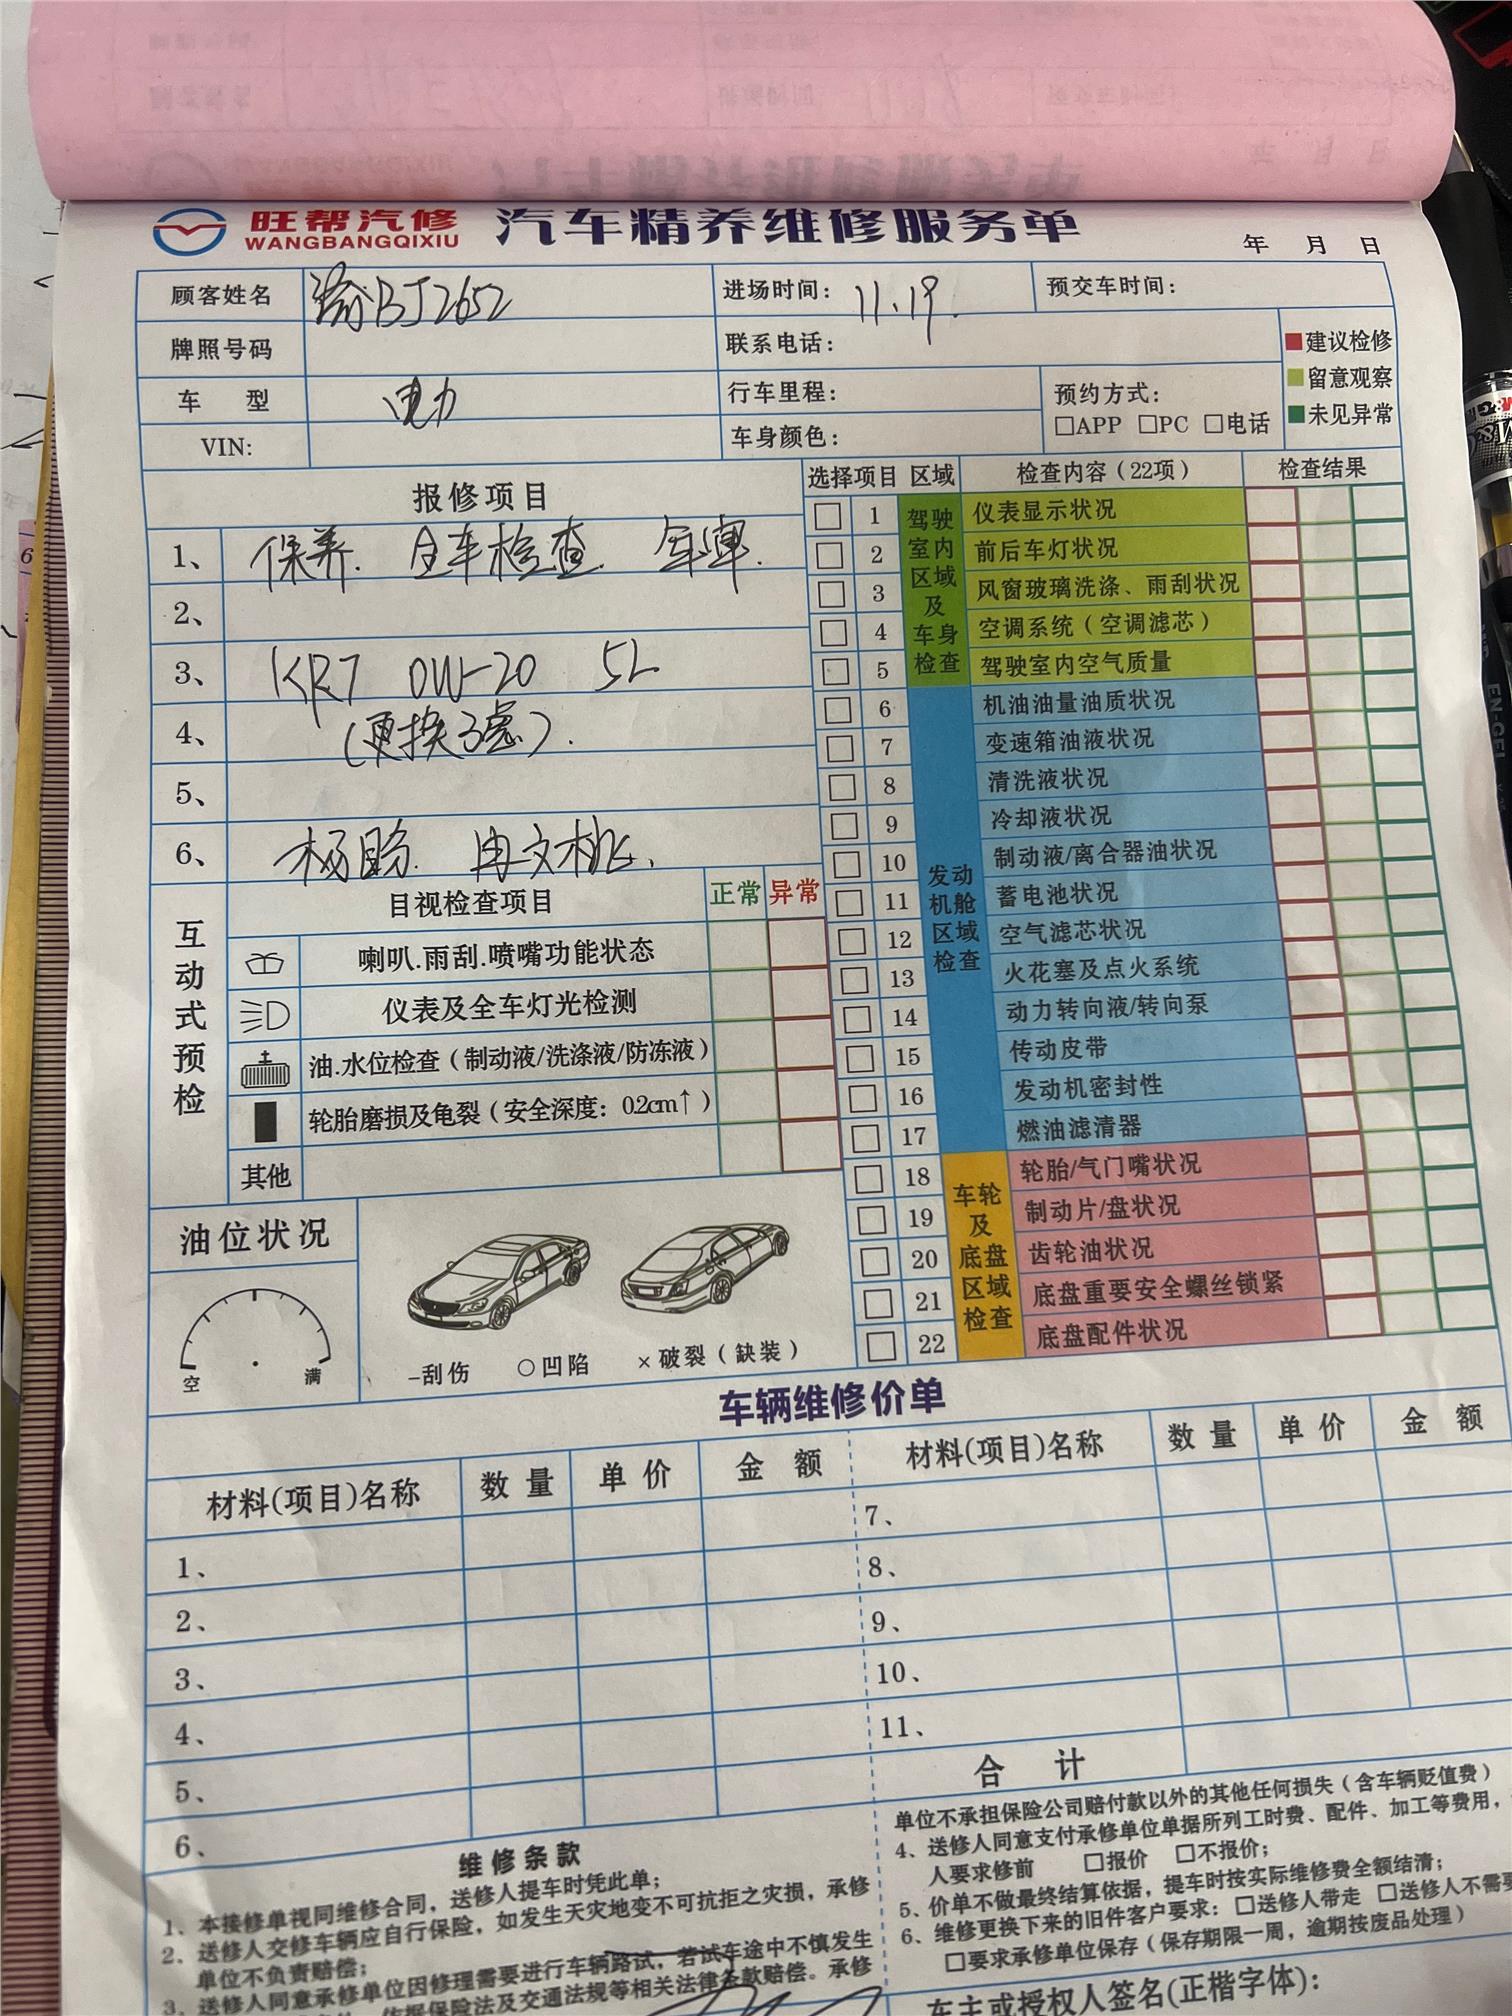 旺帮汽修
WANGBANGQIXIU
汽车精养维修服务单
年 月 日
顾客姓名 渝BJ2652 进场时间: 11.19. 预交车时间:
牌照号码 联系电话:
■建议检修
■留意观察
■未见异常
车 型 电力 行车里程: 预约方式:
□APP □PC □电话
VIN: 车身颜色:
报修项目
1、 保养. 全车检查.
2、
3、 KR7 0W-20 5L
4、 (更换3滤).
5、
6、 杨勋. 冉文桃.
互动式预检
目视检查项目 正常 异常
喇叭.雨刮.喷嘴功能状态
仪表及全车灯光检测
油.水位检查(制动液/洗涤液/防冻液)
轮胎磨损及龟裂(安全深度: 0.2cm↑)
其他
油位状况
空 满
-刮伤 ○凹陷 ×破裂(缺装)
选择项目 区域 检查内容(22项) 检查结果
驾驶室内区域及车身检查
□ 1 仪表显示状况
□ 2 前后车灯状况
□ 3 风窗玻璃洗涤、雨刮状况
□ 4 空调系统(空调滤芯)
□ 5 驾驶室内空气质量
发动机舱区域检查
□ 6 机油油量油质状况
□ 7 变速箱油液状况
□ 8 清洗液状况
□ 9 冷却液状况
□ 10 制动液/离合器油状况
□ 11 蓄电池状况
□ 12 空气滤芯状况
□ 13 火花塞及点火系统
□ 14 动力转向液/转向泵
□ 15 传动皮带
□ 16 发动机密封性
□ 17 燃油滤清器
车轮及底盘区域检查
□ 18 轮胎/气门嘴状况
□ 19 制动片/盘状况
□ 20 齿轮油状况
□ 21 底盘重要安全螺丝锁紧
□ 22 底盘配件状况
车辆维修价单
材料(项目)名称 数量 单价 金额 材料(项目)名称 数量 单价 金额
1、 7、
2、 8、
3、 9、
4、 10、
5、 11、
6、 合 计
维修条款
1、本接修单视同维修合同，送修人提车时凭此单;
2、送修人交修车辆应自行保险，如发生天灾地变不可抗拒之灾损，承修
单位不负责赔偿;
3、送修人同意承修单位因修理需要进行车辆路试，若试车途中不慎发生
依据保险法及交通法规等相关法律条款赔偿。承修
单位不承担保险公司赔付款以外的其他任何损失(含车辆贬值费)
4、送修人同意支付承修单位单据所列工时费、配件、加工等费用，
人要求修前 □报价 □不报价;
5、价单不做最终结算依据，提车时按实际维修费全额结清;
6、维修更换下来的旧件客户要求: □送修人带走 □送修人不需要
□要求承修单位保存(保存期限一周，逾期按废品处理)
车主或授权人签名(正楷字体):